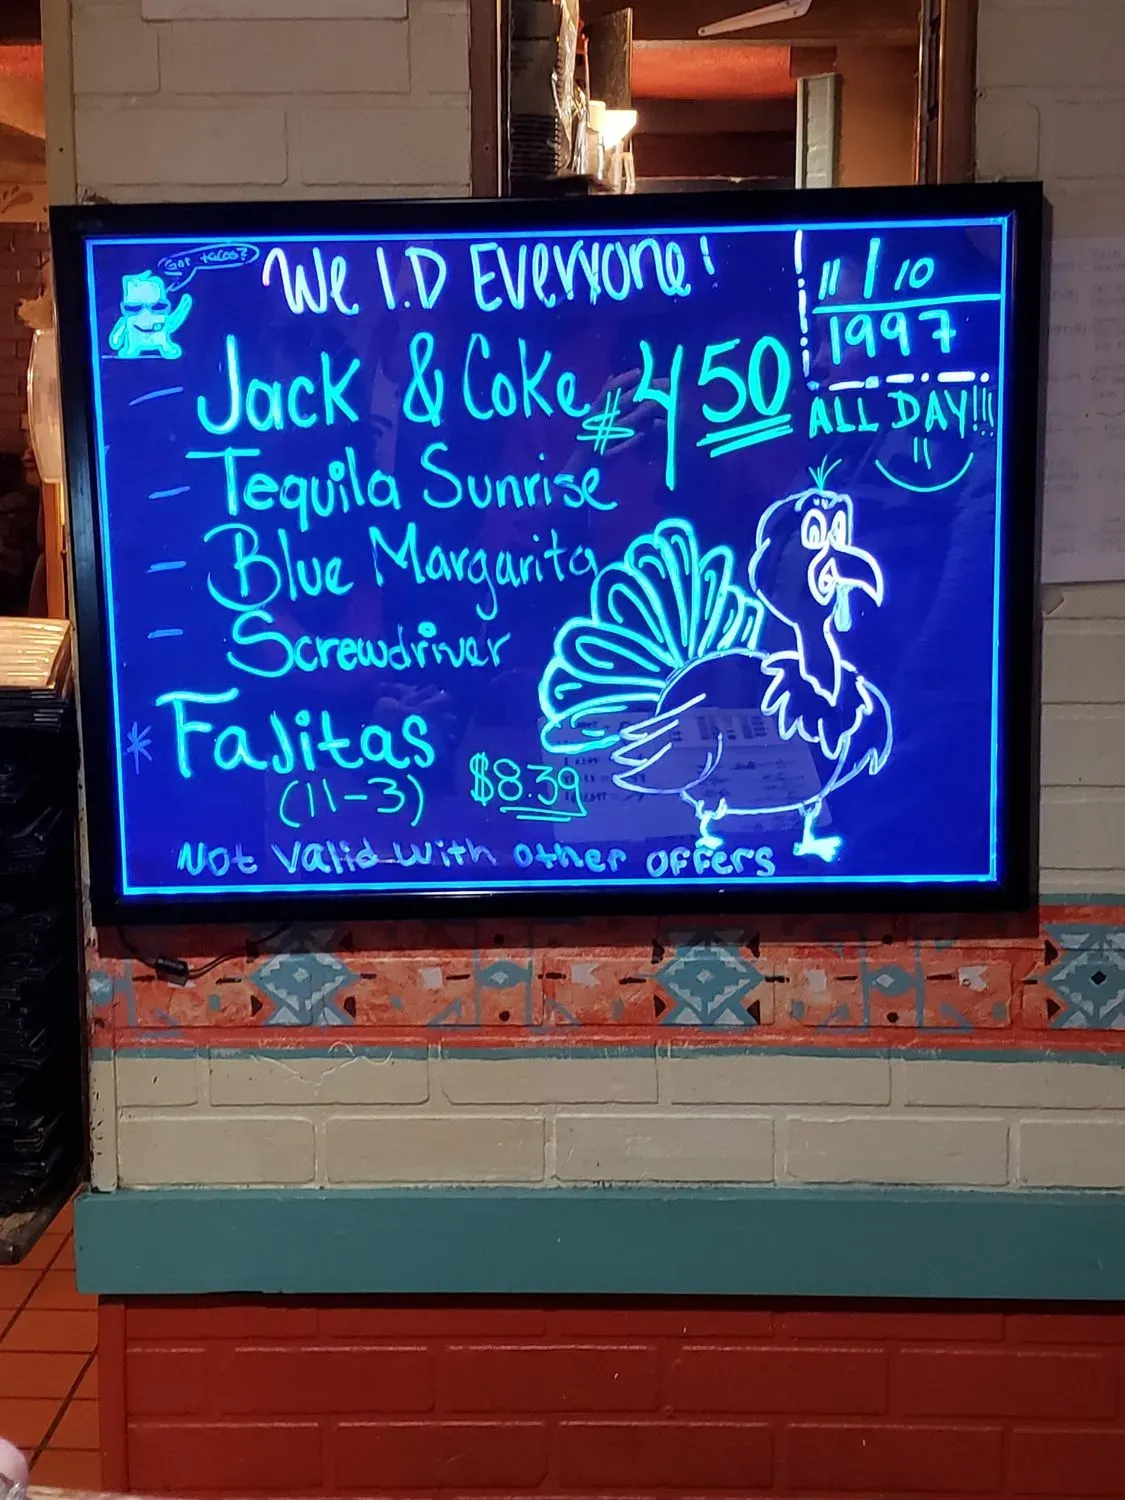 Got tacos?
We I.D Everyone!
11/10
1997
- Jack & Coke $4.50
ALL DAY!!!
- Tequila Sunrise
- Blue Margarita
- Screwdriver
* Fajitas
(11-3) $8.39
Not Valid With other offers